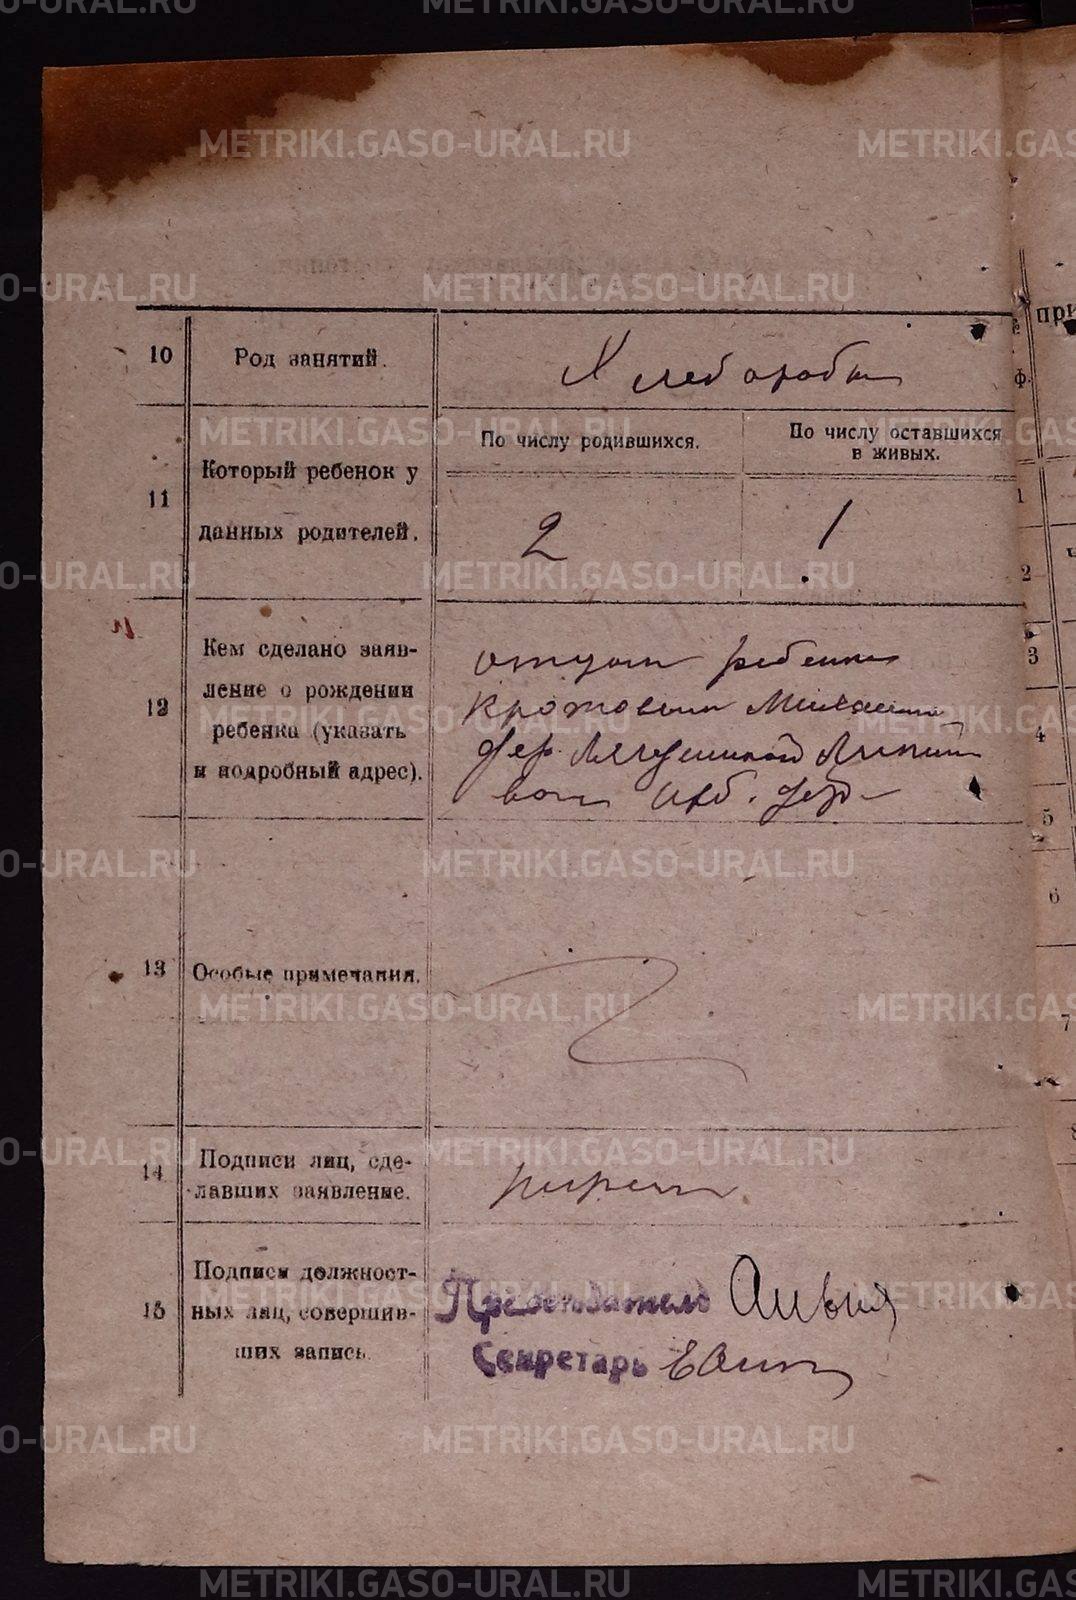 METRIKI.GASO-URAL.RU
10 Род занятий. Хлебороб
11 Который ребенок у
данных родителей.
По числу родившихся. По числу оставшихся
в живых.
2 1
12 Кем сделано заяв-
ление о рождении
ребенка (указать
и подробный адрес).
отцом ребенка
Кротовым Михаилом
дер.
вол. Ирб.
13 Особые примечания.
14 Подписи лиц, сде-
лавших заявление.
15 Подписи должност-
ных лиц, совершив-
ших запись.
Председатель
Секретарь
при
1
2
3
4
5
6
7